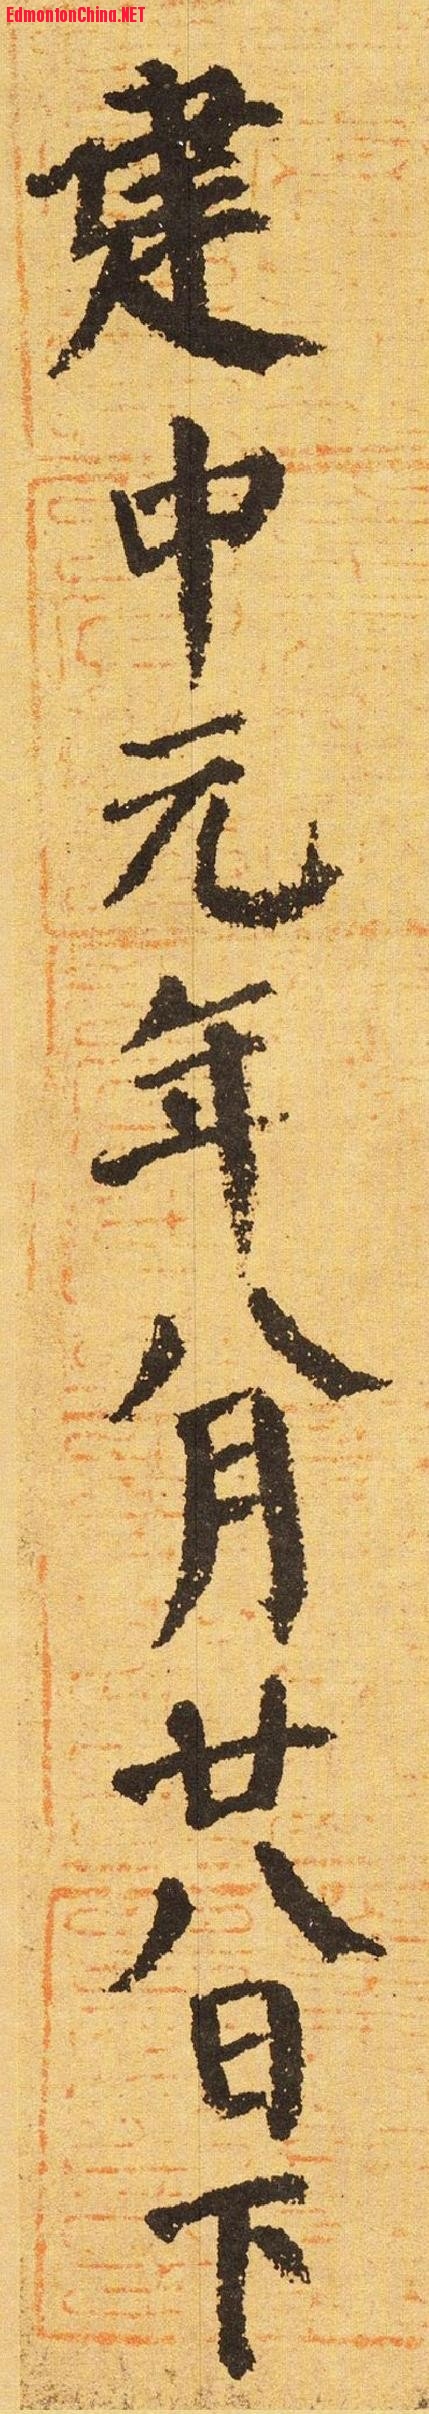 EdmontonChina.NET
建中元年八月廿八日下